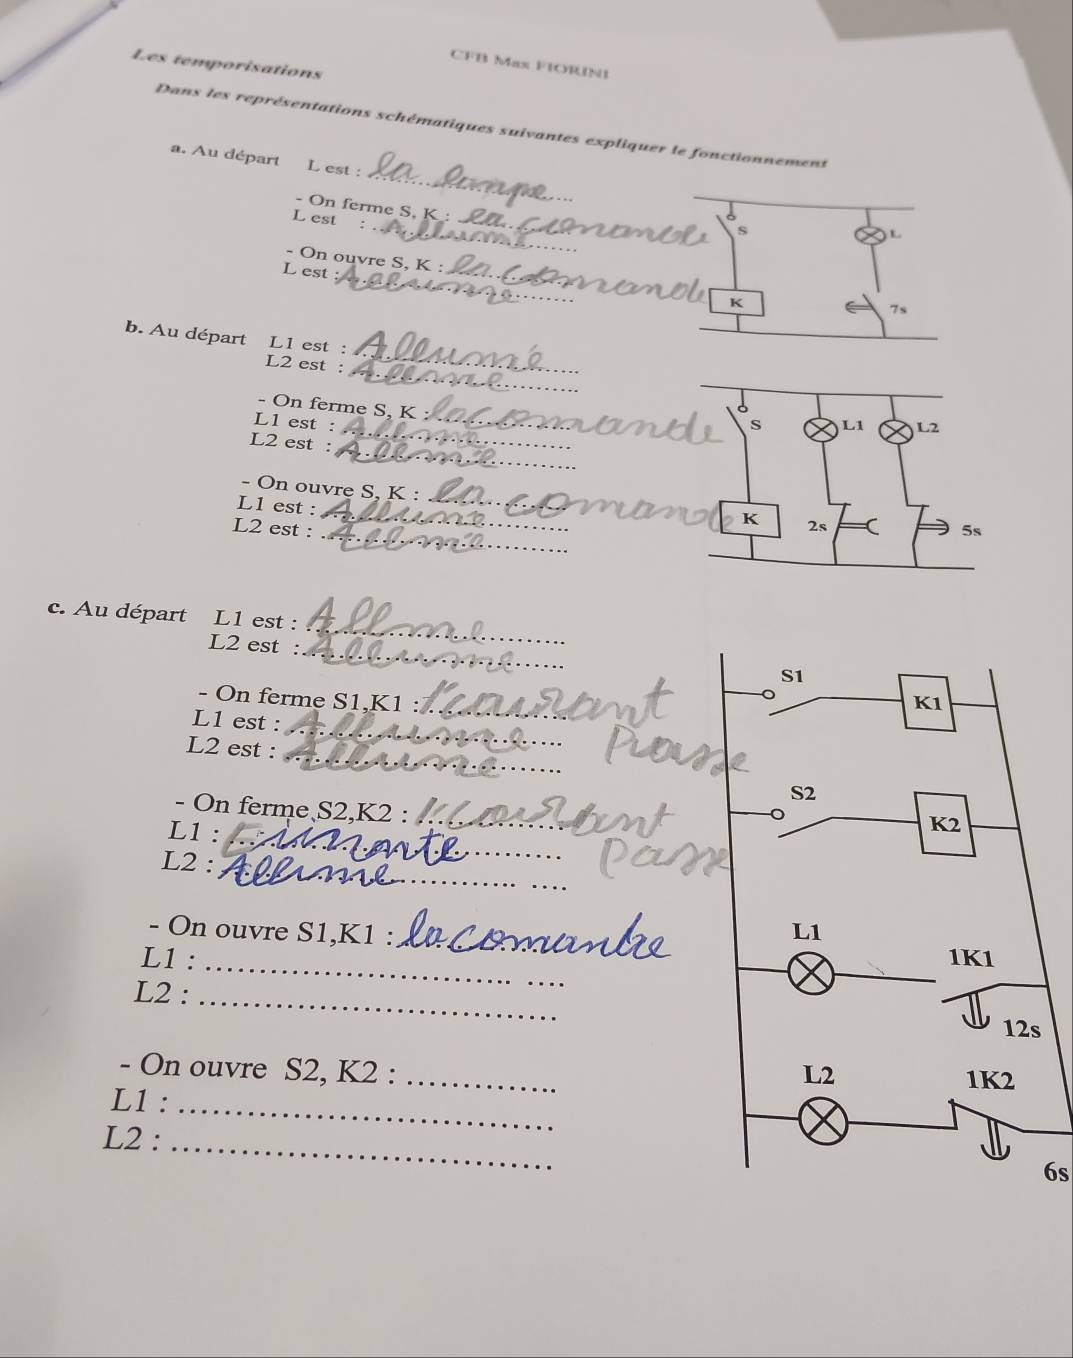 CFB Max FIORINI
Les temporisations
Dans les représentations schématiques suivantes expliquer le fonctionnement
a. Au départ L est : la lampe
- On ferme S, K : la comande
L est : Allumé
- On ouvre S, K : la comande
L est : Allumé
S
L
K
7s
b. Au départ L1 est : Allumé
L2 est : Allume
- On ferme S, K : la comande
L1 est : Allmé
L2 est : Allumé
- On ouvre S, K : la comande
L1 est : Allumé
L2 est : Allumé
S
L1
L2
K
2s
5s
c. Au départ L1 est : Allme
L2 est : Allumé
- On ferme S1,K1 : l'courant
L1 est : Allume Passe
L2 est : Allume
- On ferme S2,K2 :
L1 :
L2 : Allume
- On ouvre S1,K1 : la comande
L1 :
L2 :
- On ouvre S2, K2 :
L1 :
L2 :
S1
K1
S2
K2
L1
1K1
12s
L2
1K2
6s